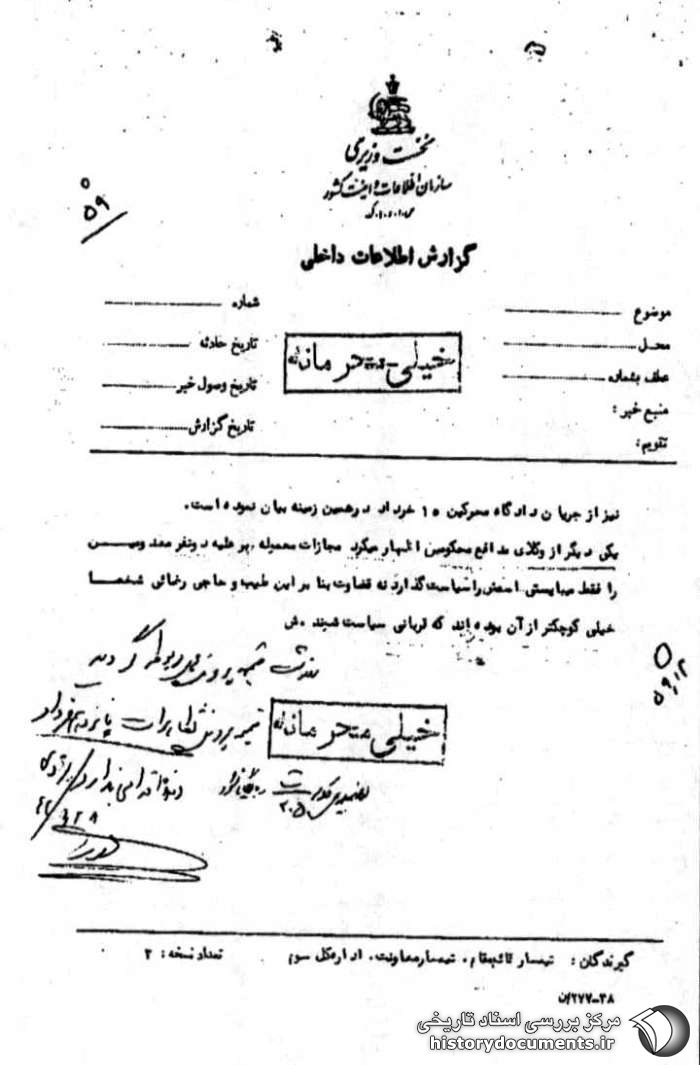 نخست وزیری
سازمان اطلاعات و امنیت کشور
س.ا.و.ا.ک
۵۹
گزارش اطلاعات داخلی
موضوع
شماره
محل
تاریخ حادثه
عطف بشماره
تاریخ وصول خبر
منبع خبر :
تاریخ گزارش
تقویم:
خیلی محرمانه
نیز از جریان دادگاه محرکین ۱۵ خرداد درهمین زمینه بیان نموده است.
یکی دیگر از وکلای مدافع محکومین اظهار میکرد مجازات معموله بر علیه دو نفر معدومین
را فقط میبایستی اسمش را سیاست گذارد نه قضاوت بنا بر این طیب و حاجی رضائی شخصا
خیلی کوچکتر از آن بوده اند که قربانی سیاست شوند . ش
خیلی محرمانه
ضمیمه پرونده تظاهرات پانزده خرداد
گیرندگان : تیمسار قائممقام . تیمسار معاونت . اداره کل سوم
تعداد نسخه : ۲
۳۸-۲۷۷/ن
مرکز بررسی اسناد تاریخی
historydocuments.ir